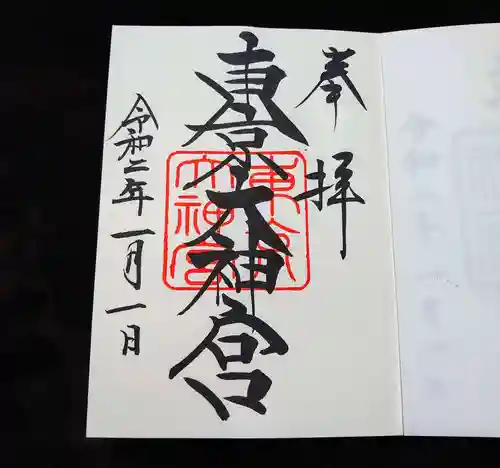 奉拝
東京大神宮
令和二年一月一日
東京大神宮